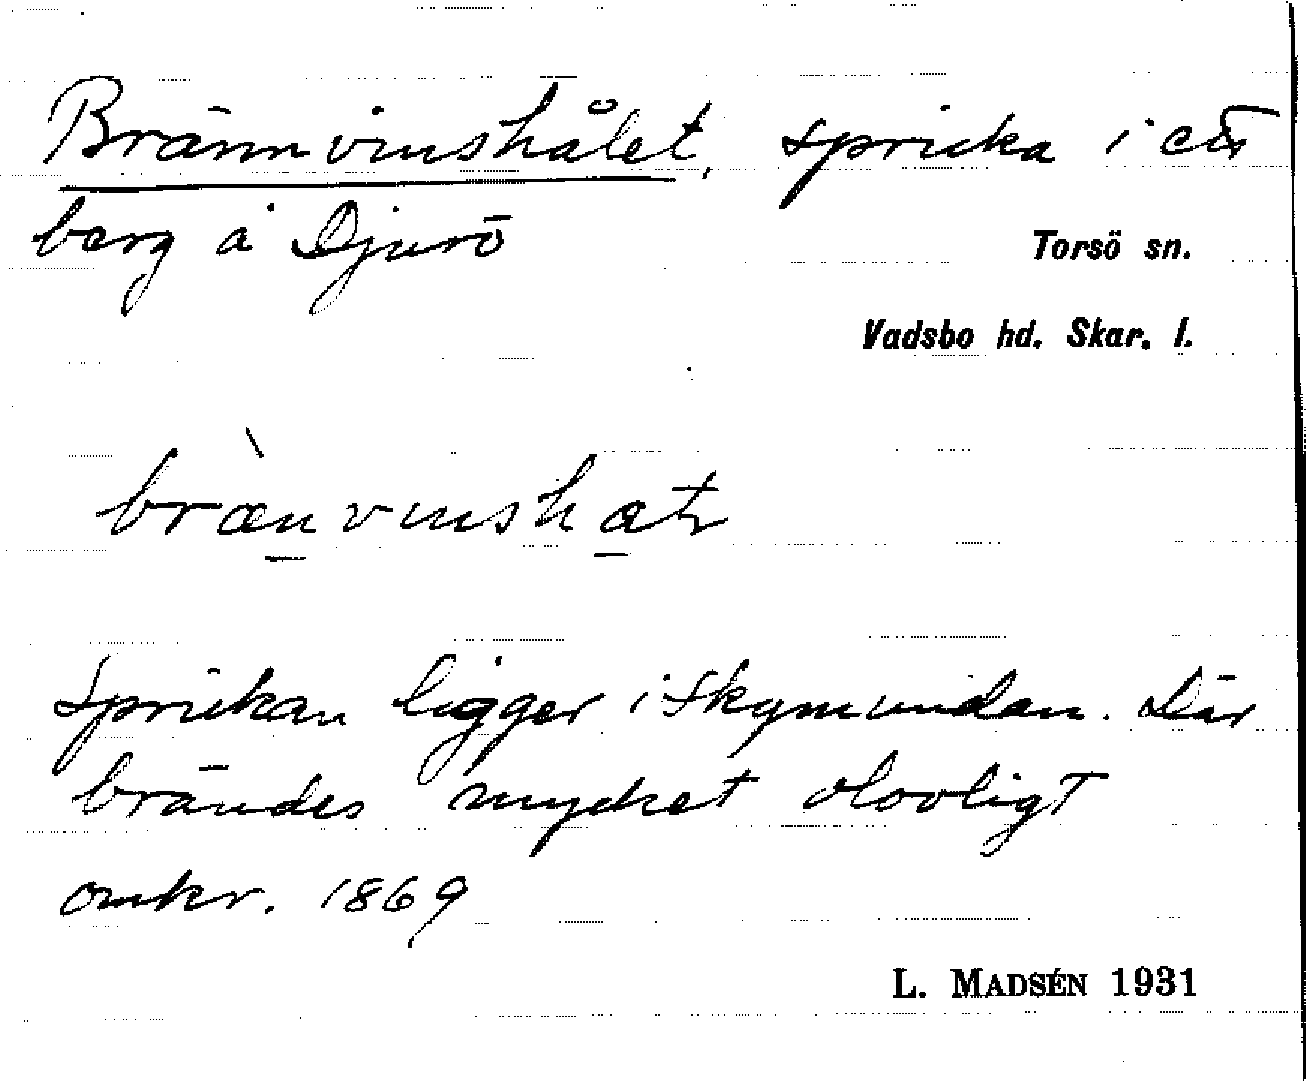 Brännvinshålet, spricka i ett
berg å Djurö
Torsö sn.
Vadsbo hd. Skar. l.
brænvinshatr
Sprickan ligger i skymundan. Där
brändes mycket olovligt
omkr. 1869
L. MADSÉN 1931